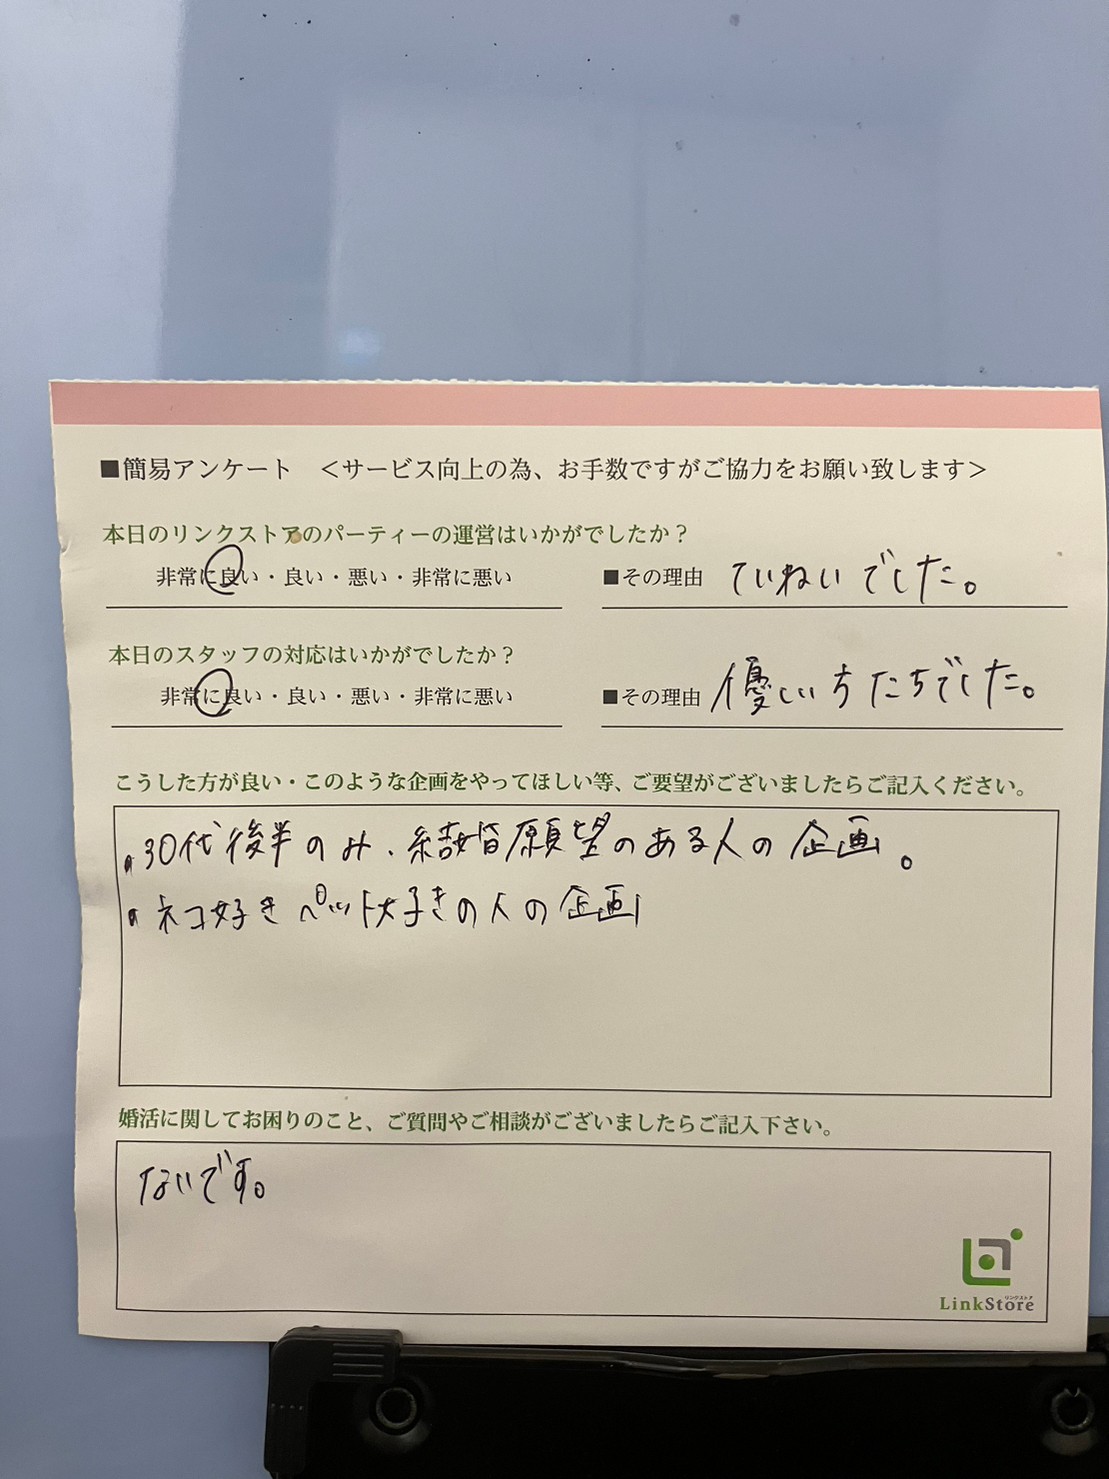 ■簡易アンケート ＜サービス向上の為、お手数ですがご協力をお願い致します＞
本日のリンクストアのパーティーの運営はいかがでしたか？
非常に良い・良い・悪い・非常に悪い ■その理由 ていねいでした。
本日のスタッフの対応はいかがでしたか？
非常に良い・良い・悪い・非常に悪い ■その理由 優しい方たちでした。
こうした方が良い・このような企画をやってほしい等、ご要望がございましたらご記入ください。
・30代後半のみ、結婚願望のある人の企画。
・ネコ好きペット好きの人の企画
婚活に関してお困りのこと、ご質問やご相談がございましたらご記入下さい。
ないです。
リンクストア
LinkStore